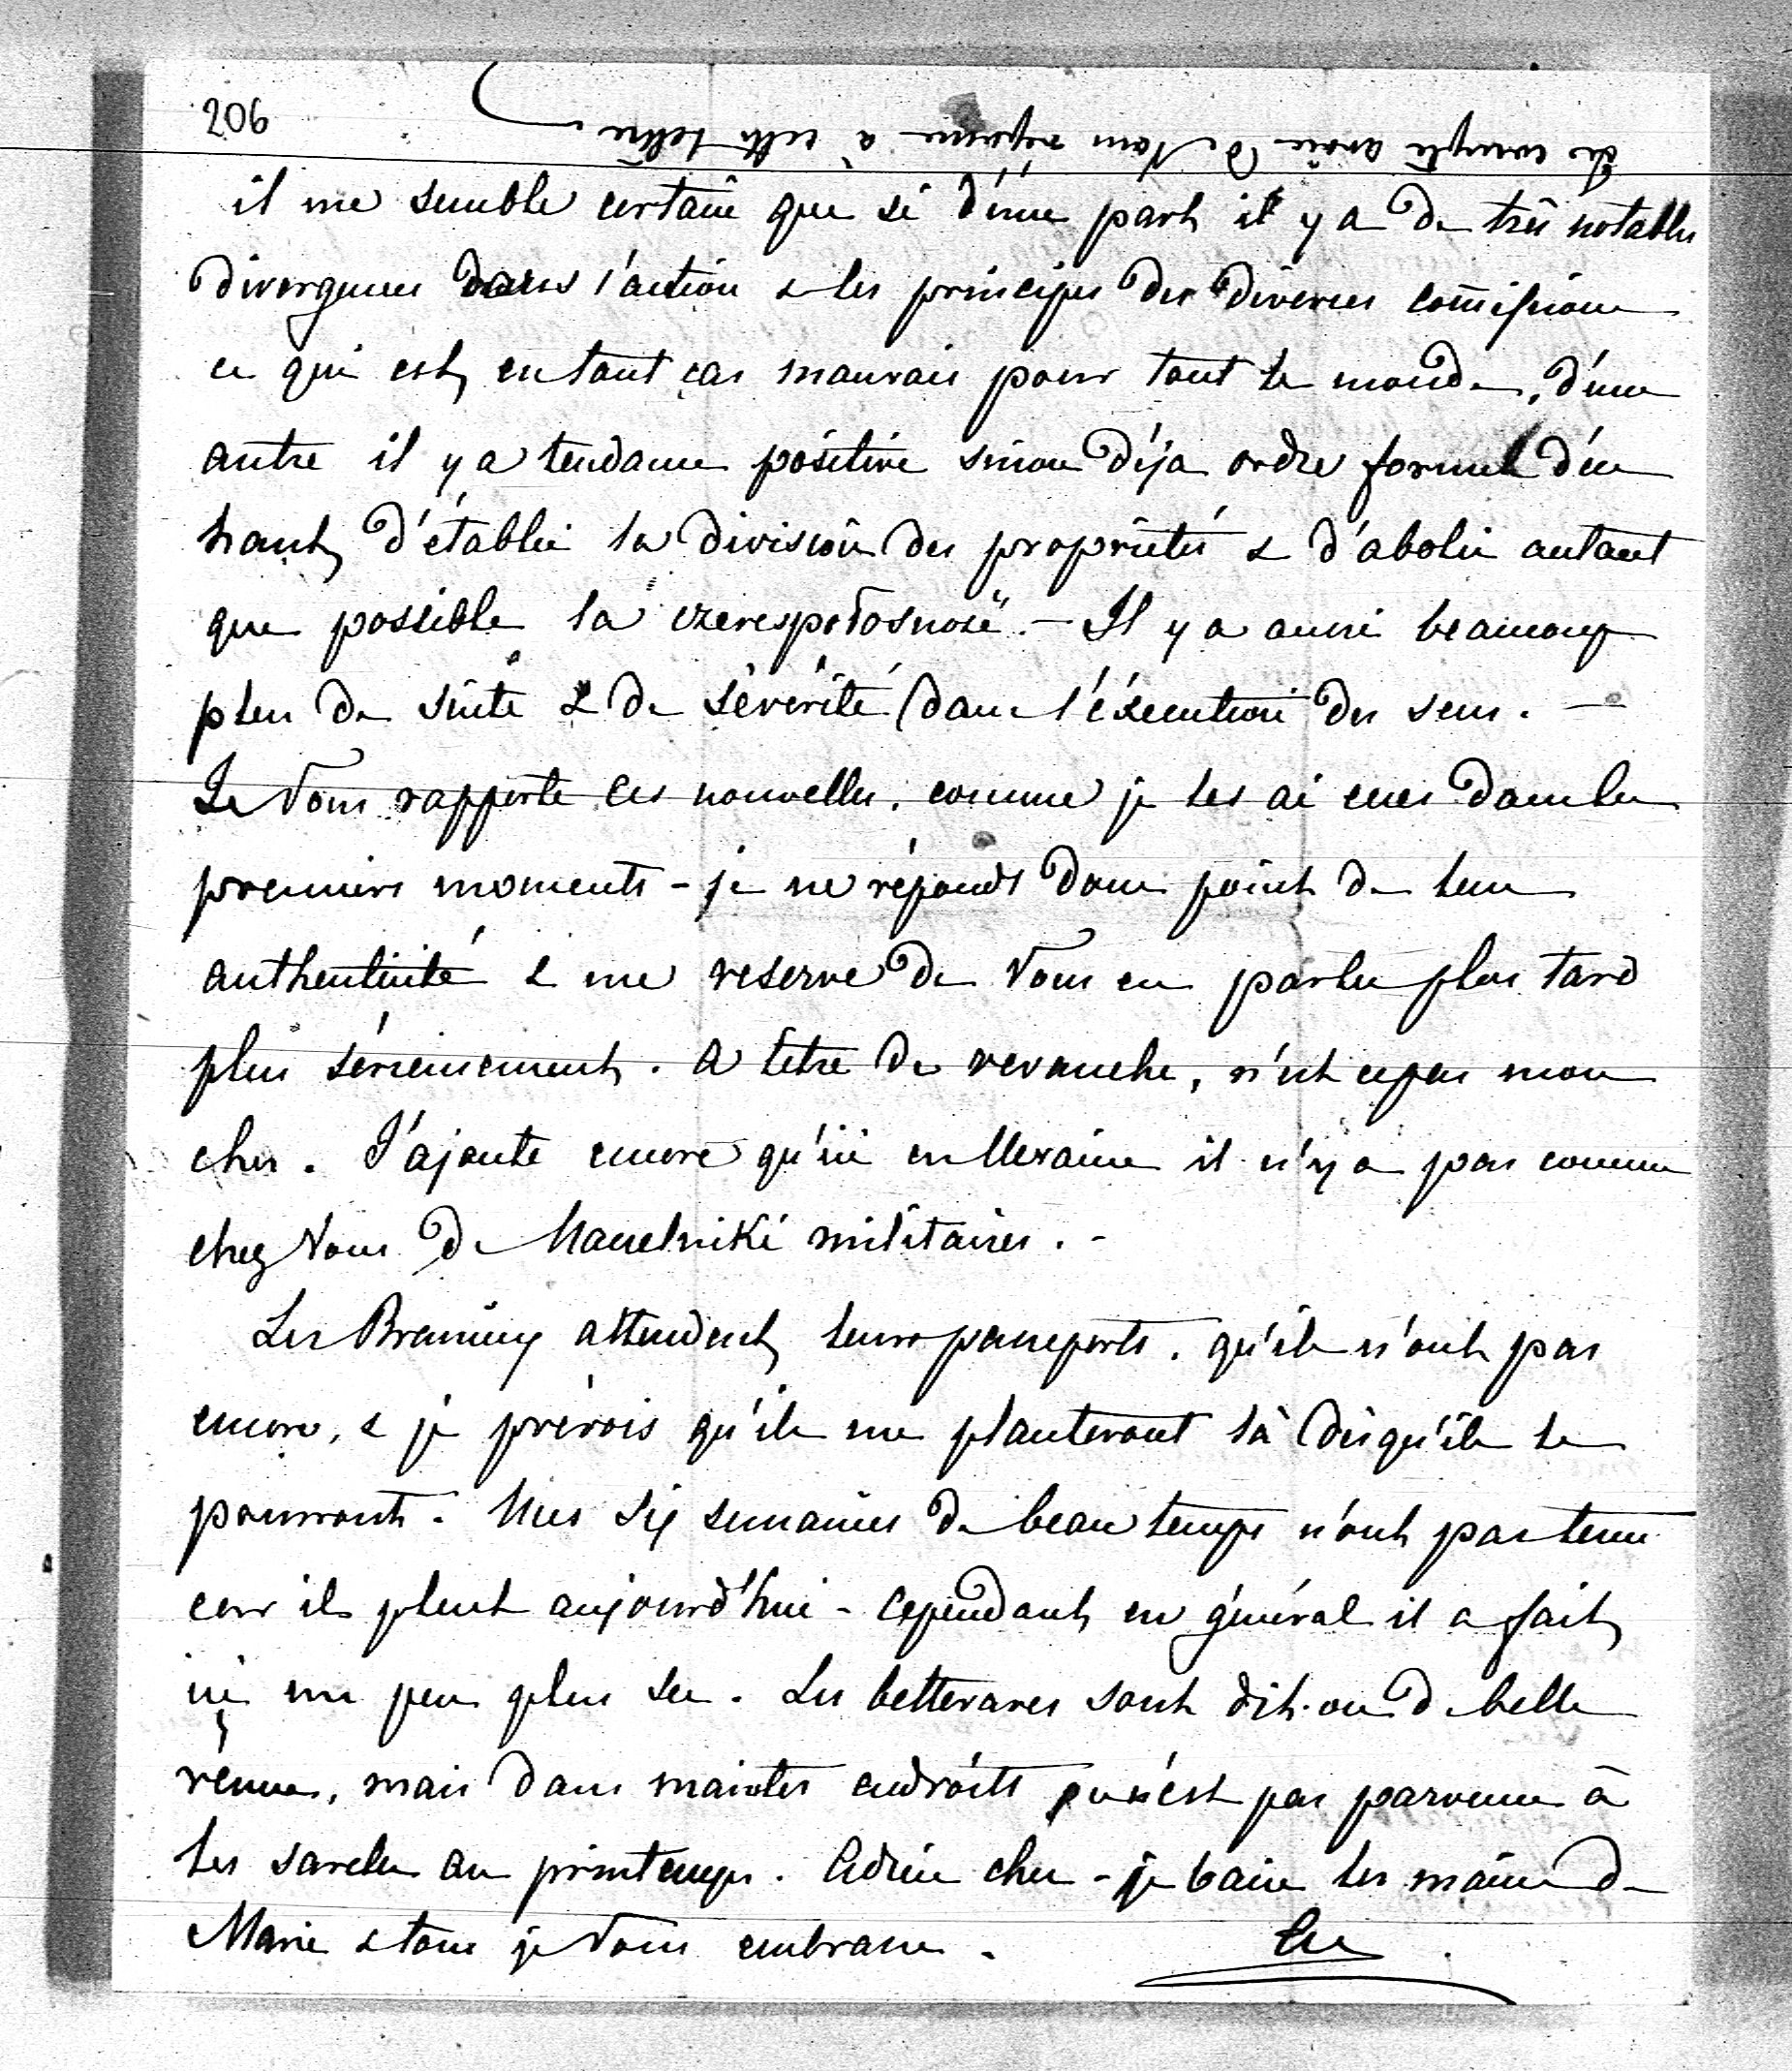 206
Je compte avoir de Vous réponse à cette lettre
il me semble certain que si d'une part il y a de très notables
divergences dans l'action & les principes des diverses com̄issions
ce qui est, en tout cas mauvais pour tout le monde, d'une
autre il y a tendance positive sinon déja ordre formel d'en
haut, d'établir la division des propriétés & d'abolir autant
que possible la "czerespołosnosć". — Il y a aussi beaucoup
plus de suite & de sévérité dans l'éxecution des sens. —
Je Vous rapporte ces nouvelles, comme je les ai eues dans les
premiers moments - je ne réponds donc point de leur
authenticité & me reserve de Vous en parler plus tard
plus sérieusement. a titre de revanche, n'est ce pas mon
cher. J'ajoute encore qu'ici en Ukraine il n'y a pas comme
chez Vous de Nacelniki militaires. -
Les Braniçy attendent, leurs passeports, qu'ils n'ont pas
encore, & je prévois qu'ils me planteront là dès qu'ils le
pourront. Nos six semaines de beau temps n'ont pas tenu
car il pleut aujourd'hui - cependant, en général il a fait,
ici un peu plus sec. Les betteraves sont dit-on de belle
venue, mais dans maintes endroits on n'est pas parvenu à
les sarcler au printemps. Adieu cher - je baise les mains de
Marie & tous je Vous embrasse.